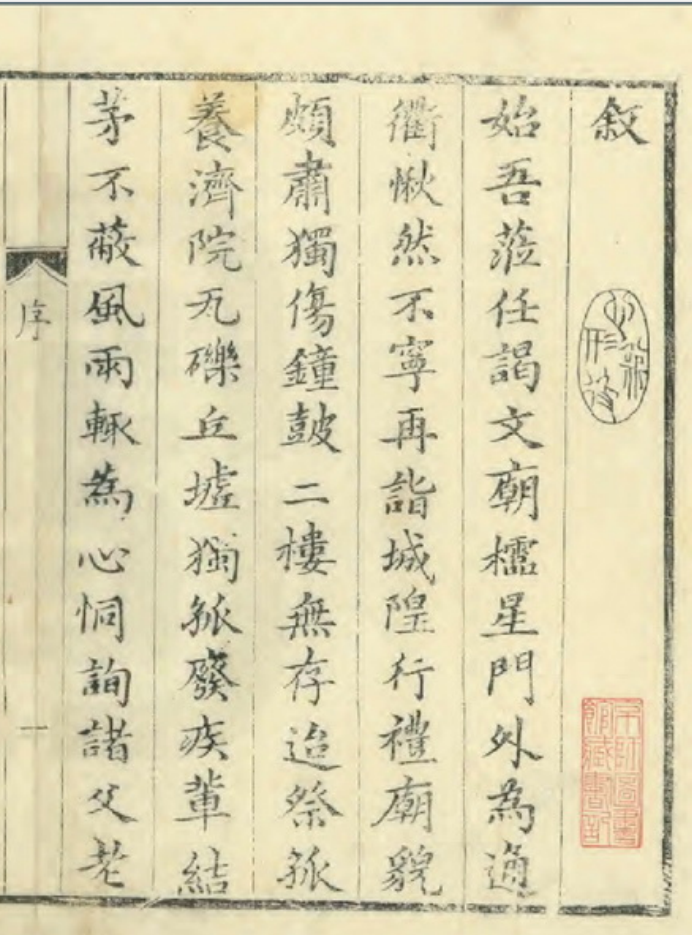 叙
始吾蒞任謁文廟櫺星門外為通
衢愀然不寧再詣城隍行禮廟貌
頗肅獨傷鐘鼓二樓無存迨祭孤
養濟院瓦礫丘墟獨孤癈疾輩結
茅不蔽風雨輒為心恫詢諸父老
序
一
京師圖書
館藏書記